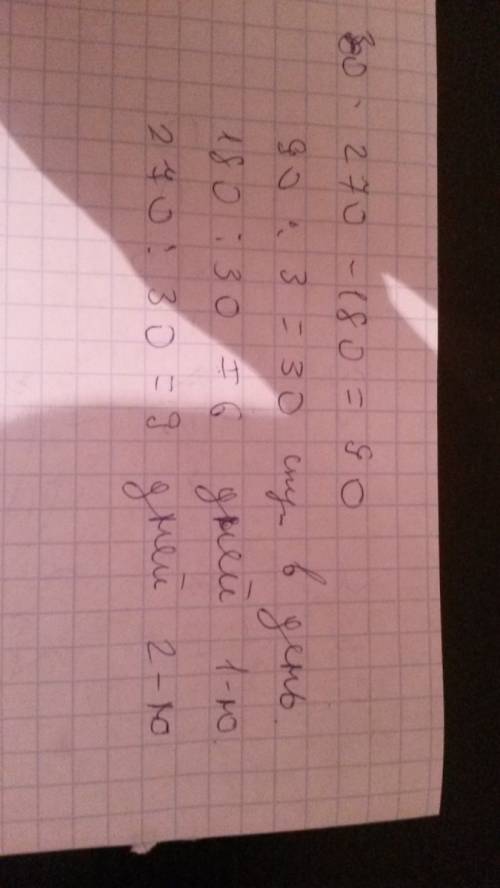 270 - 180 = 90
90 : 3 = 30 стр. в день.
180 : 30 = 6 дней 1-ю.
270 : 30 = 9 дней 2-ю